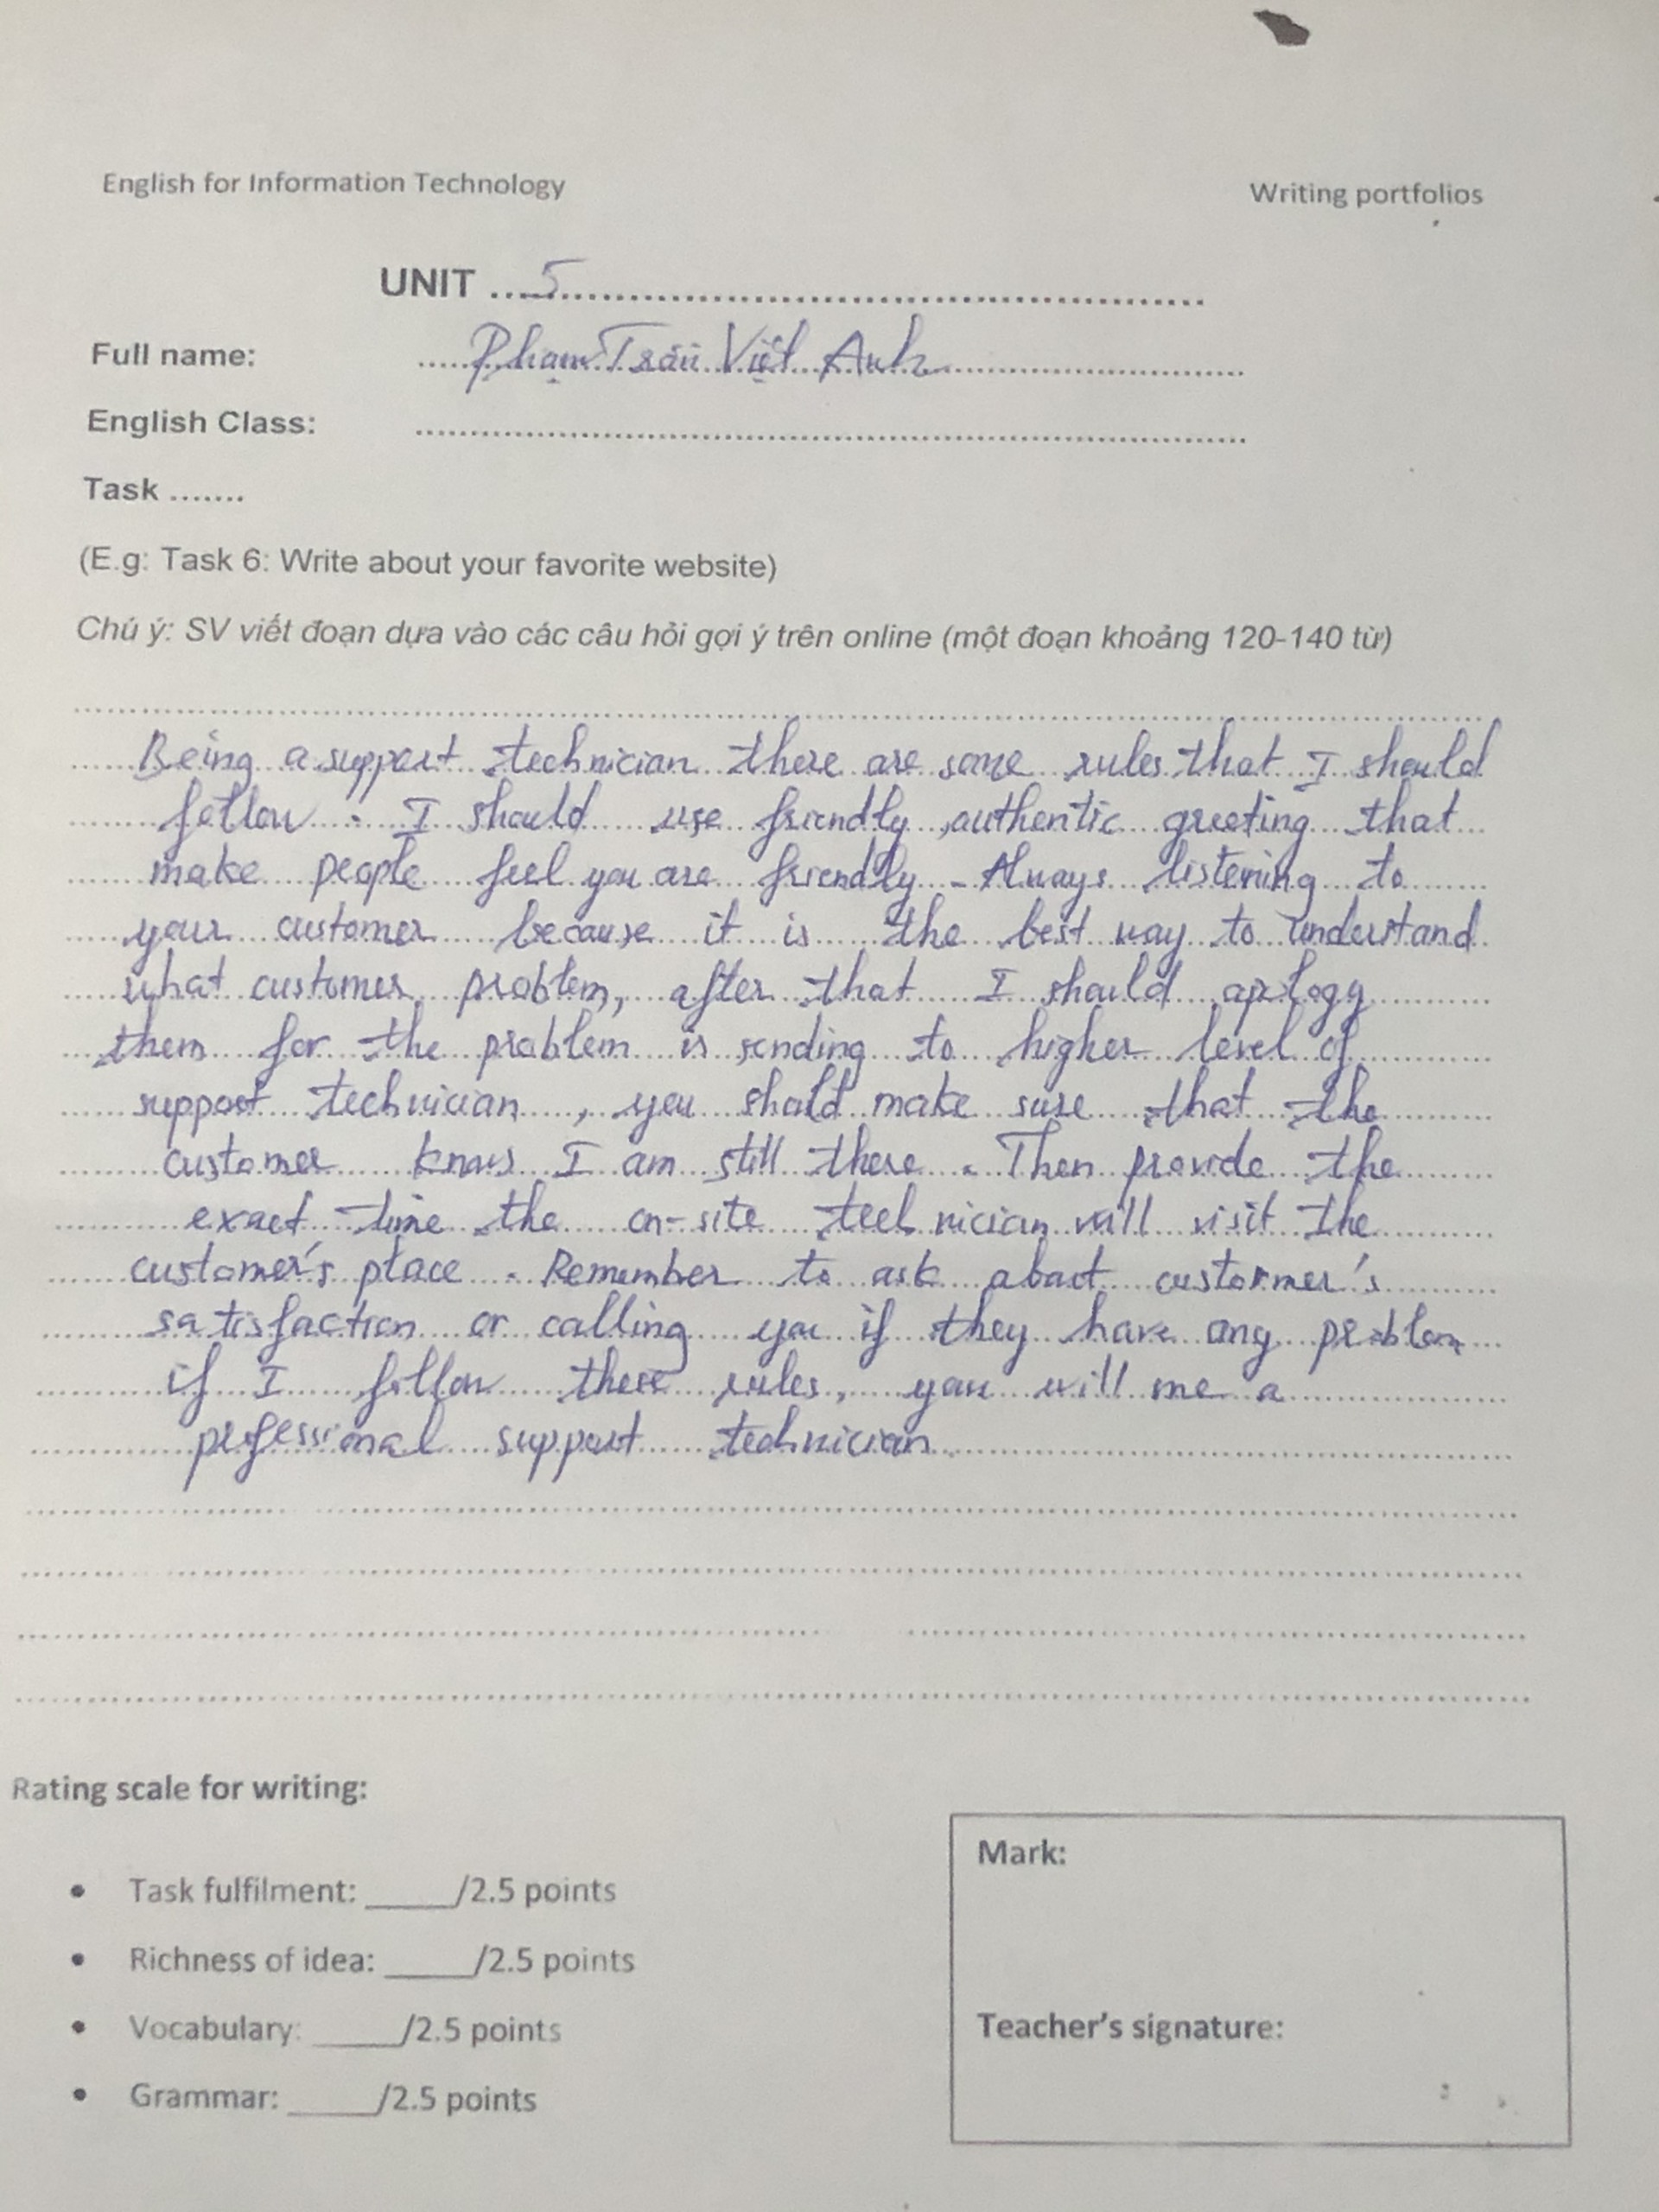 English for Information Technology
Writing portfolios
UNIT ....5................
Full name: Phạm Trần Việt Anh
English Class: ................
Task .......
(E.g: Task 6: Write about your favorite website)
Chú ý: SV viết đoạn dựa vào các câu hỏi gợi ý trên online (một đoạn khoảng 120-140 từ)
Being a support technician there are some rules that I should
follow. I should use friendly, authentic greeting that
make people feel you are friendly. Always listening to
your customer because it is the best way to understand
what customer problem, after that I should apology
them for the problem is sending to higher level of
support technician, you shold make sure that the
customer knows I am still there. Then provide the
exact time the on-site technician will visit the
customer's place. Remember to ask about customer's
satisfaction or calling you if they have any problem
if I follow these rules, you will me a
professional support technician
Rating scale for writing:
• Task fulfilment: _____/2.5 points
• Richness of idea: _____/2.5 points
• Vocabulary: _____/2.5 points
• Grammar: _____/2.5 points
Mark:
Teacher's signature: